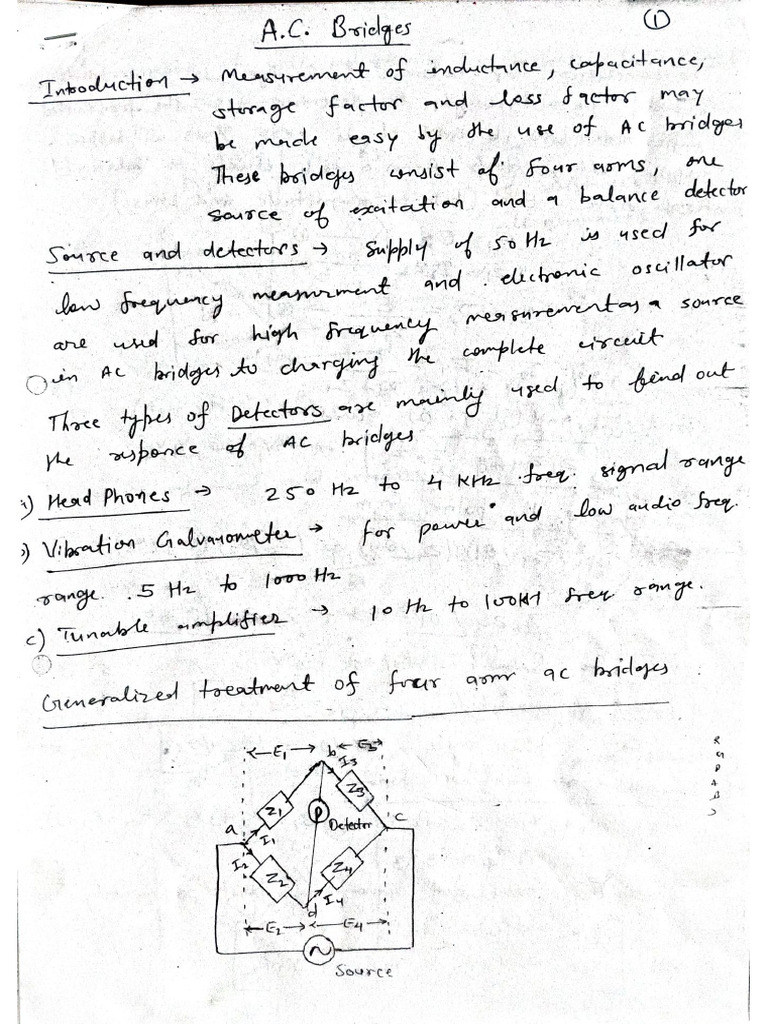 A.C. Bridges
①
Introduction → Measurement of inductance, capacitance,
storage factor and loss factor may
be made easy by the use of AC bridges
These bridges consist of four arms, one
source of excitation and a balance detector
Source and detectors → Supply of 50 Hz is used for
low frequency measurment and electronic oscillator
are used for high frequency measurement as a source
in AC bridges to charging the complete circuit
Three types of Detectors are mainly used to find out
the responce of AC bridges
Head Phones → 250 Hz to 4 KHz freq. signal range
Vibration Galvanometer → for power and low audio freq.
range. 5 Hz to 1000 Hz
c) Tunable amplifier → 10 Hz to 100 freq range.
Generalized treatment of four arm ac bridges
E1 b E3
I3
Z1 Z3
a D Detector c
I1
I2
Z2 Z4
I4
d
E2 E4
Source